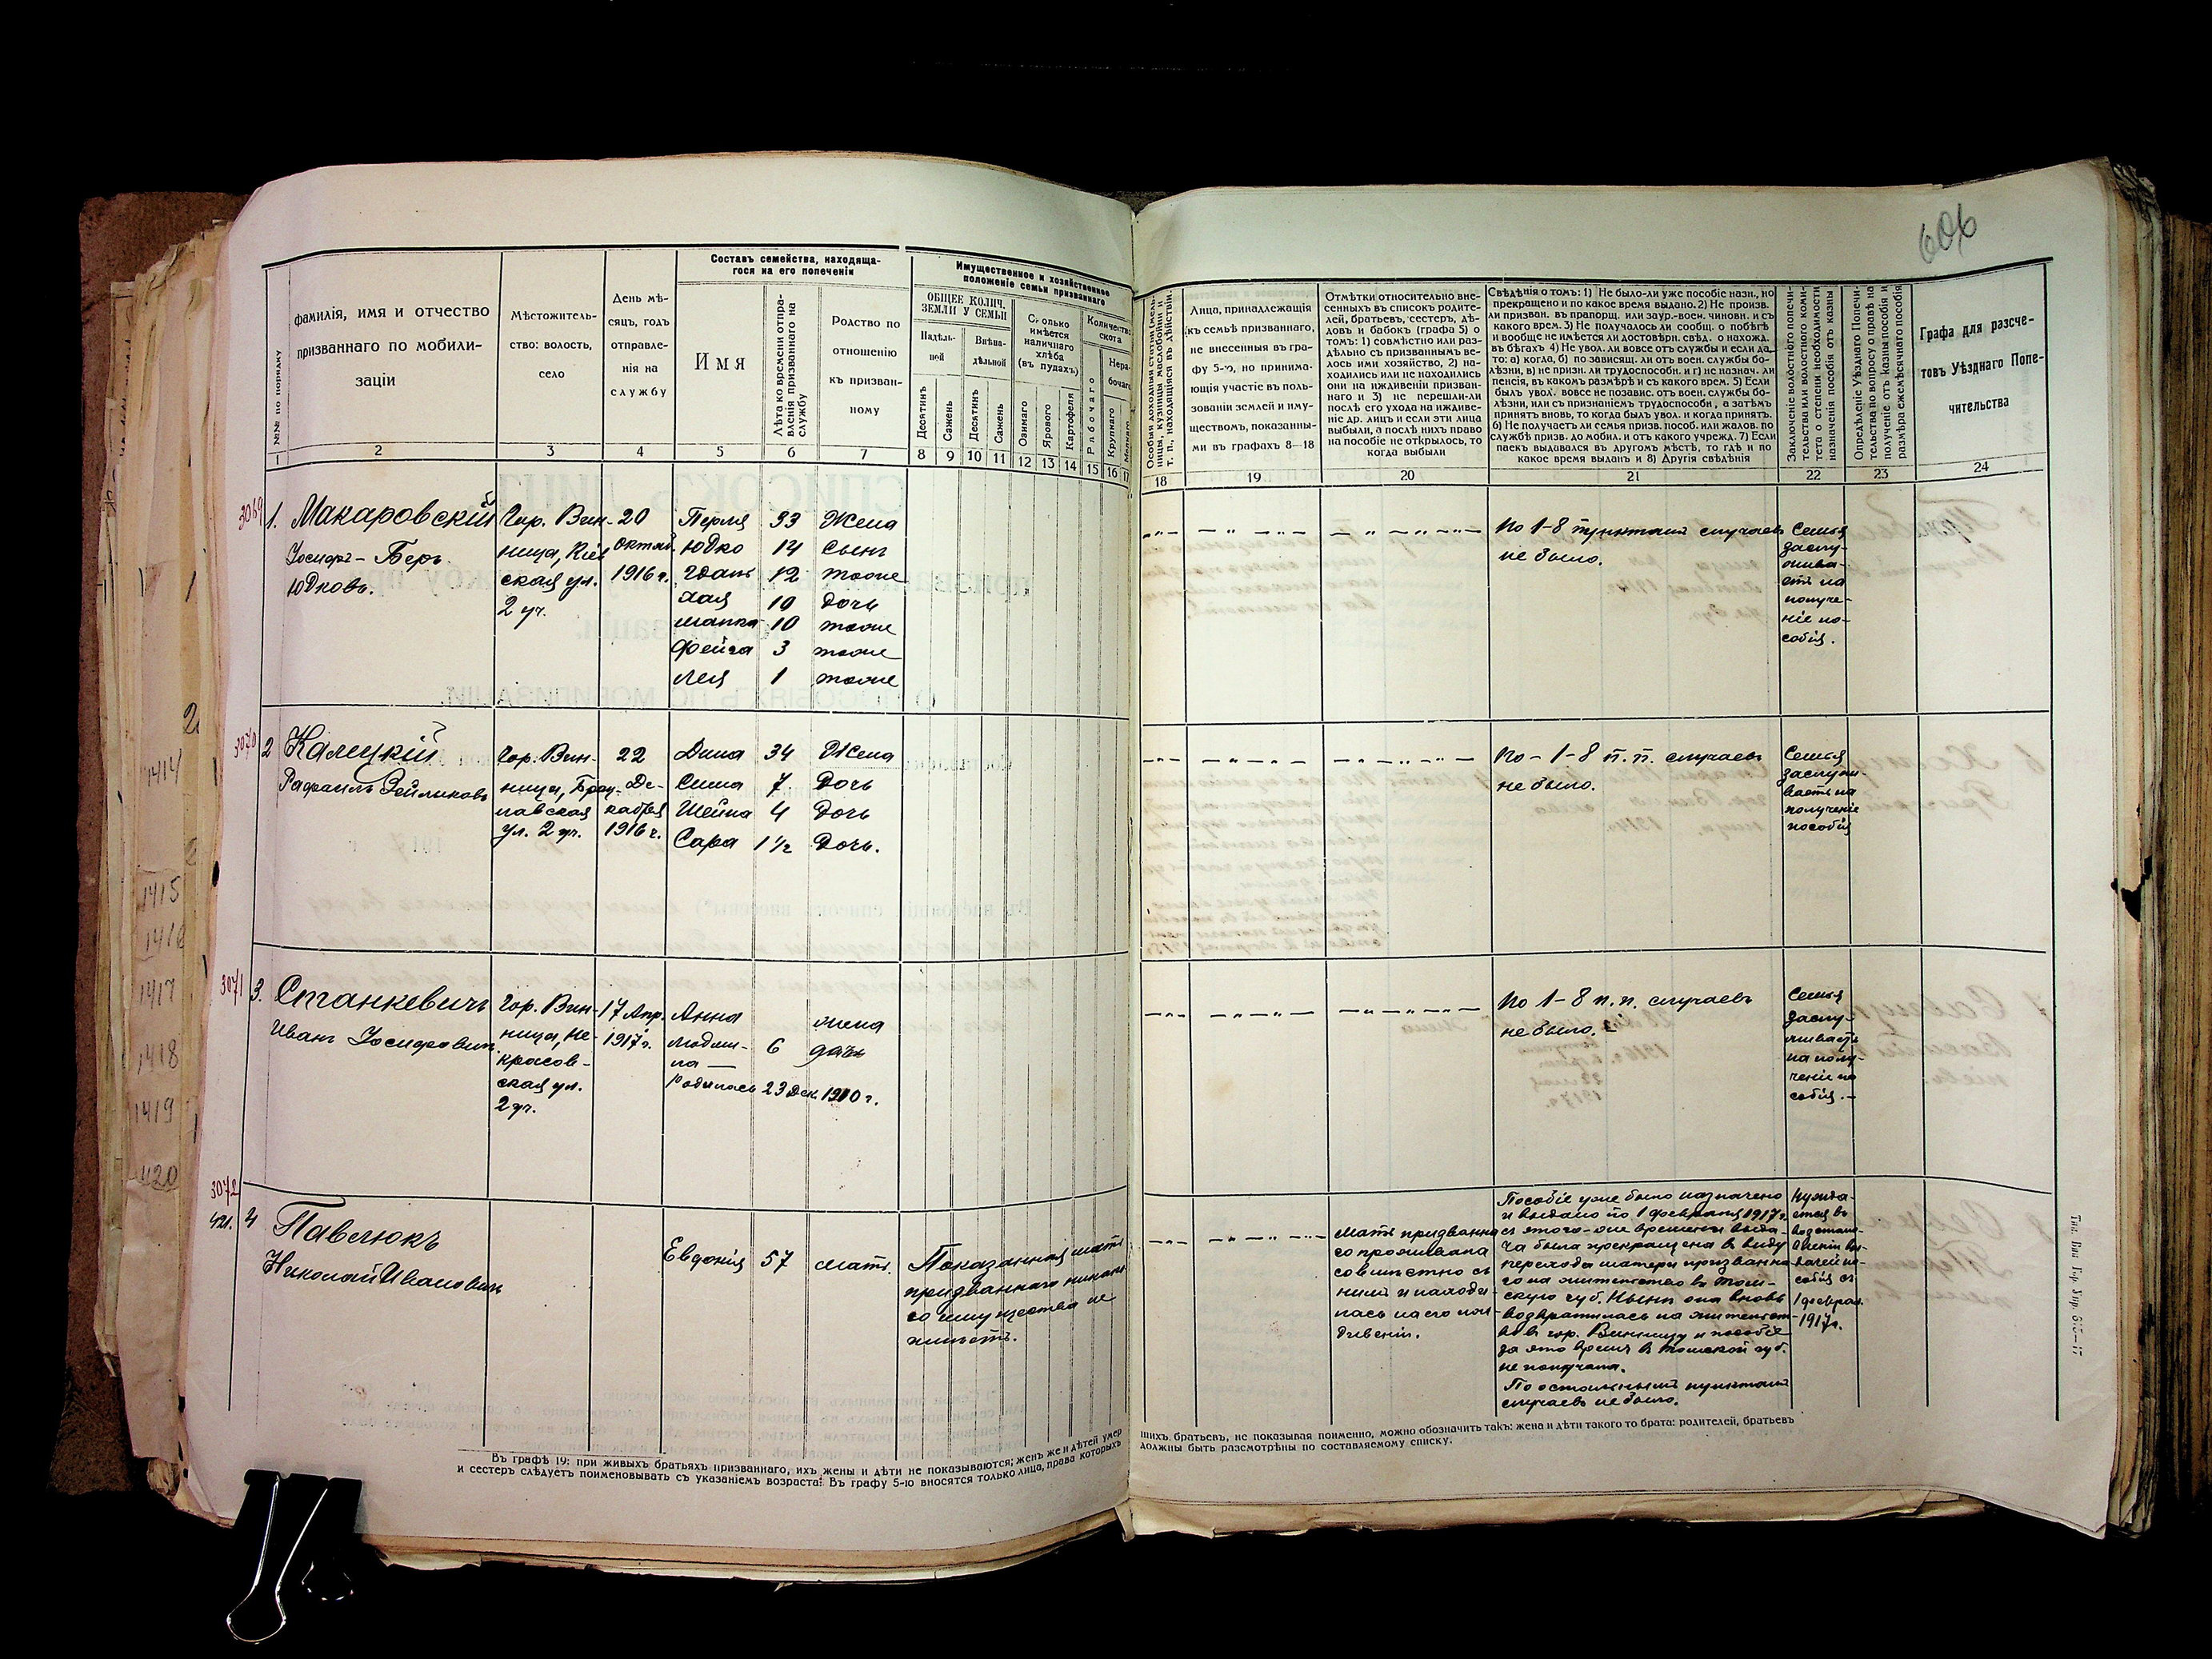 606
Составъ семейства, находяща-
гося на его попеченіи
Имущественное и хозяйственное
положеніе семьи призваннаго
№№ по порядку
фамилія, имя и отчество
призваннаго по мобили-
заціи
Мѣстожитель-
ство: волость,
село
День мѣ-
сяцъ, годъ
отправле-
нія на
службу
Имя
Лѣта ко времени отпра-
вленія призваннаго на
службу
Родство по
отношенію
къ призван-
ному
ОБЩЕЕ КОЛИЧ.
ЗЕМЛИ У СЕМЬИ
Надѣль-
ной
Внѣна-
дѣльной
Десятинъ
Сажень
Десятинъ
Сажень
Сколько
имѣется
наличнаго
хлѣба
(въ пудахъ)
Озимаго
Ярового
Картофеля
Количество
скота
Рабочаго
Нера-
бочаго
Крупнаго
Мелкаго
Лица, принадлежащія
къ семьѣ призваннаго,
не внесенныя въ гра-
фу 5-ю, но принима-
ющія участіе въ поль-
зованіи землей и иму-
ществомъ, показанны-
ми въ графахъ 8—18
Отмѣтки относительно вне-
сенныхъ въ списокъ родите-
лей, братьевъ, сестеръ, дѣ-
довъ и бабокъ (графа 5) о
томъ: 1) совмѣстно или раз-
дѣльно съ призваннымъ ве-
лось ими хозяйство, 2) на-
ходились или не находились
они на иждивеніи призван-
наго и 3) не перешли-ли
послѣ его ухода на иждиве-
ніе др. лицъ и если эти лица
выбыли, а послѣ нихъ право
на пособіе не открылось, то
когда выбыли
Свѣдѣнія о томъ: 1) Не было-ли уже пособіе назн., но
прекращено и по какое время выдано. 2) Не произв.
ли призван. въ прапорщ. или заур.-воен. чиновн. и съ
какого врем. 3) Не получалось ли сообщ. о побѣгѣ
и вообще не имѣется ли достовѣрн. свѣд. о нахожд.
въ бѣгахъ 4) Не увол. ли вовсе отъ службы и если да,
то: а) когда, б) по зависящ. ли отъ воен. службы бо-
лѣзни, в) не призн. ли трудоспособн. и г) не назнач. ли
пенсія, въ какомъ размѣрѣ и съ какого врем. 5) Если
былъ увол. вовсе не позавис. отъ воен. службы бо-
лѣзни, или съ признаніемъ трудоспособн., а затѣмъ
принятъ вновь, то когда былъ увол. и когда принятъ.
6) Не получаетъ ли семья призв. пособ. или жалов. по
службѣ призв. до мобил. и отъ какого учрежд. 7) Если
паекъ выдавался въ другомъ мѣстѣ, то гдѣ и по
какое время выданъ и 8) Другія свѣдѣнія
Заключеніе волостного попечи-
тельства или волостного коми-
тета о степени необходимости
назначенія пособія отъ казны
Опредѣленіе Уѣзднаго Попечи-
тельства по вопросу о правѣ на
полученіе отъ казны пособія и
размѣра ежемѣсячнаго пособія
Графа для разсче-
товъ Уѣзднаго Попе-
чительства
1 2 3 4 5 6 7 8 9 10 11 12 13 14 15 16 17 18 19 20 21 22 23 24
3069
1. Макаровскій
Іосифъ-Беръ
Юдковъ.
Гор. Вин-
ница, Кіев
ская ул.
2 уч.
20
октяб.
1916 г.
Перля 33 Жена
Юдко 14 Сынъ
12 тоже
Хая 10 Дочь
10 тоже
Фейга 3 тоже
Лея 1 тоже
По 1-8 пунктамъ случаевъ
не было.
Семья
заслу-
жива-
етъ на
получе-
ніе по-
собія.
3070
2 Калецкій
Рафаилъ Зейликовъ
Гор. Вин-
ница, Брац-
лавская
ул. 2 уч.
22
Де-
кабря
1916 г.
Дина 34 Жена
Сима 7 Дочь
Шейна 4 Дочь
Сара 1½ Дочь.
По - 1-8 п.п. случаевъ
не было.
Семья
заслужи-
ваетъ на
полученіе
пособія
3071
3. Станкевичъ
Иванъ Іосифовичъ
Гор. Вин-
ница, Не-
красов-
ская ул.
2 уч.
17 Апр.
1917 г.
Анна жена
Людми- 6 дочь
ла —
Родилась 23 Дек. 1910 г.
По 1-8 п.п. случаевъ
не было.
Семья
заслу-
живаетъ
на полу-
ченіе по
собія.-
3072
421. 4
Павлюкъ
Николай Ивановичъ
Евдокія 57 мать.
Показанная мать
призваннаго никако
го имущества не
имѣетъ.
Мать призванна
го проживала
совмѣстно съ
нимъ и находи-
лась на его иж-
дивеніи.
Пособіе уже было назначено
и выдано по 1 февраля 1917 г.
съ этого-же времени выда-
ча была прекращена въ виду
перехода матери призванна
го на жительство въ Том-
скую губ. Нынѣ она вновь
возвратилась на жительст-
во въ гор. Винницу и пособіе
за это время въ Томской губ.
не получала.
По остальнымъ пунктамъ
случаевъ не было.
Нужда-
ется въ
возстано-
вленіи вы-
дачей по-
собія съ
1 феврал.
1917 г.
Въ графѣ 19: при живыхъ братьяхъ призваннаго, ихъ жены и дѣти не показываются; женъ же и дѣтей умер
шихъ братьевъ, не показывая поименно, можно обозначить такъ: жена и дѣти такого то брата: родителей, братьевъ
и сестеръ слѣдуетъ поименовывать съ указаніемъ возраста. Въ графу 5-ю вносятся только лица, права которыхъ
должны быть разсмотрѣны по составляемому списку.
1414
1415
1416
1417
1418
1419
420